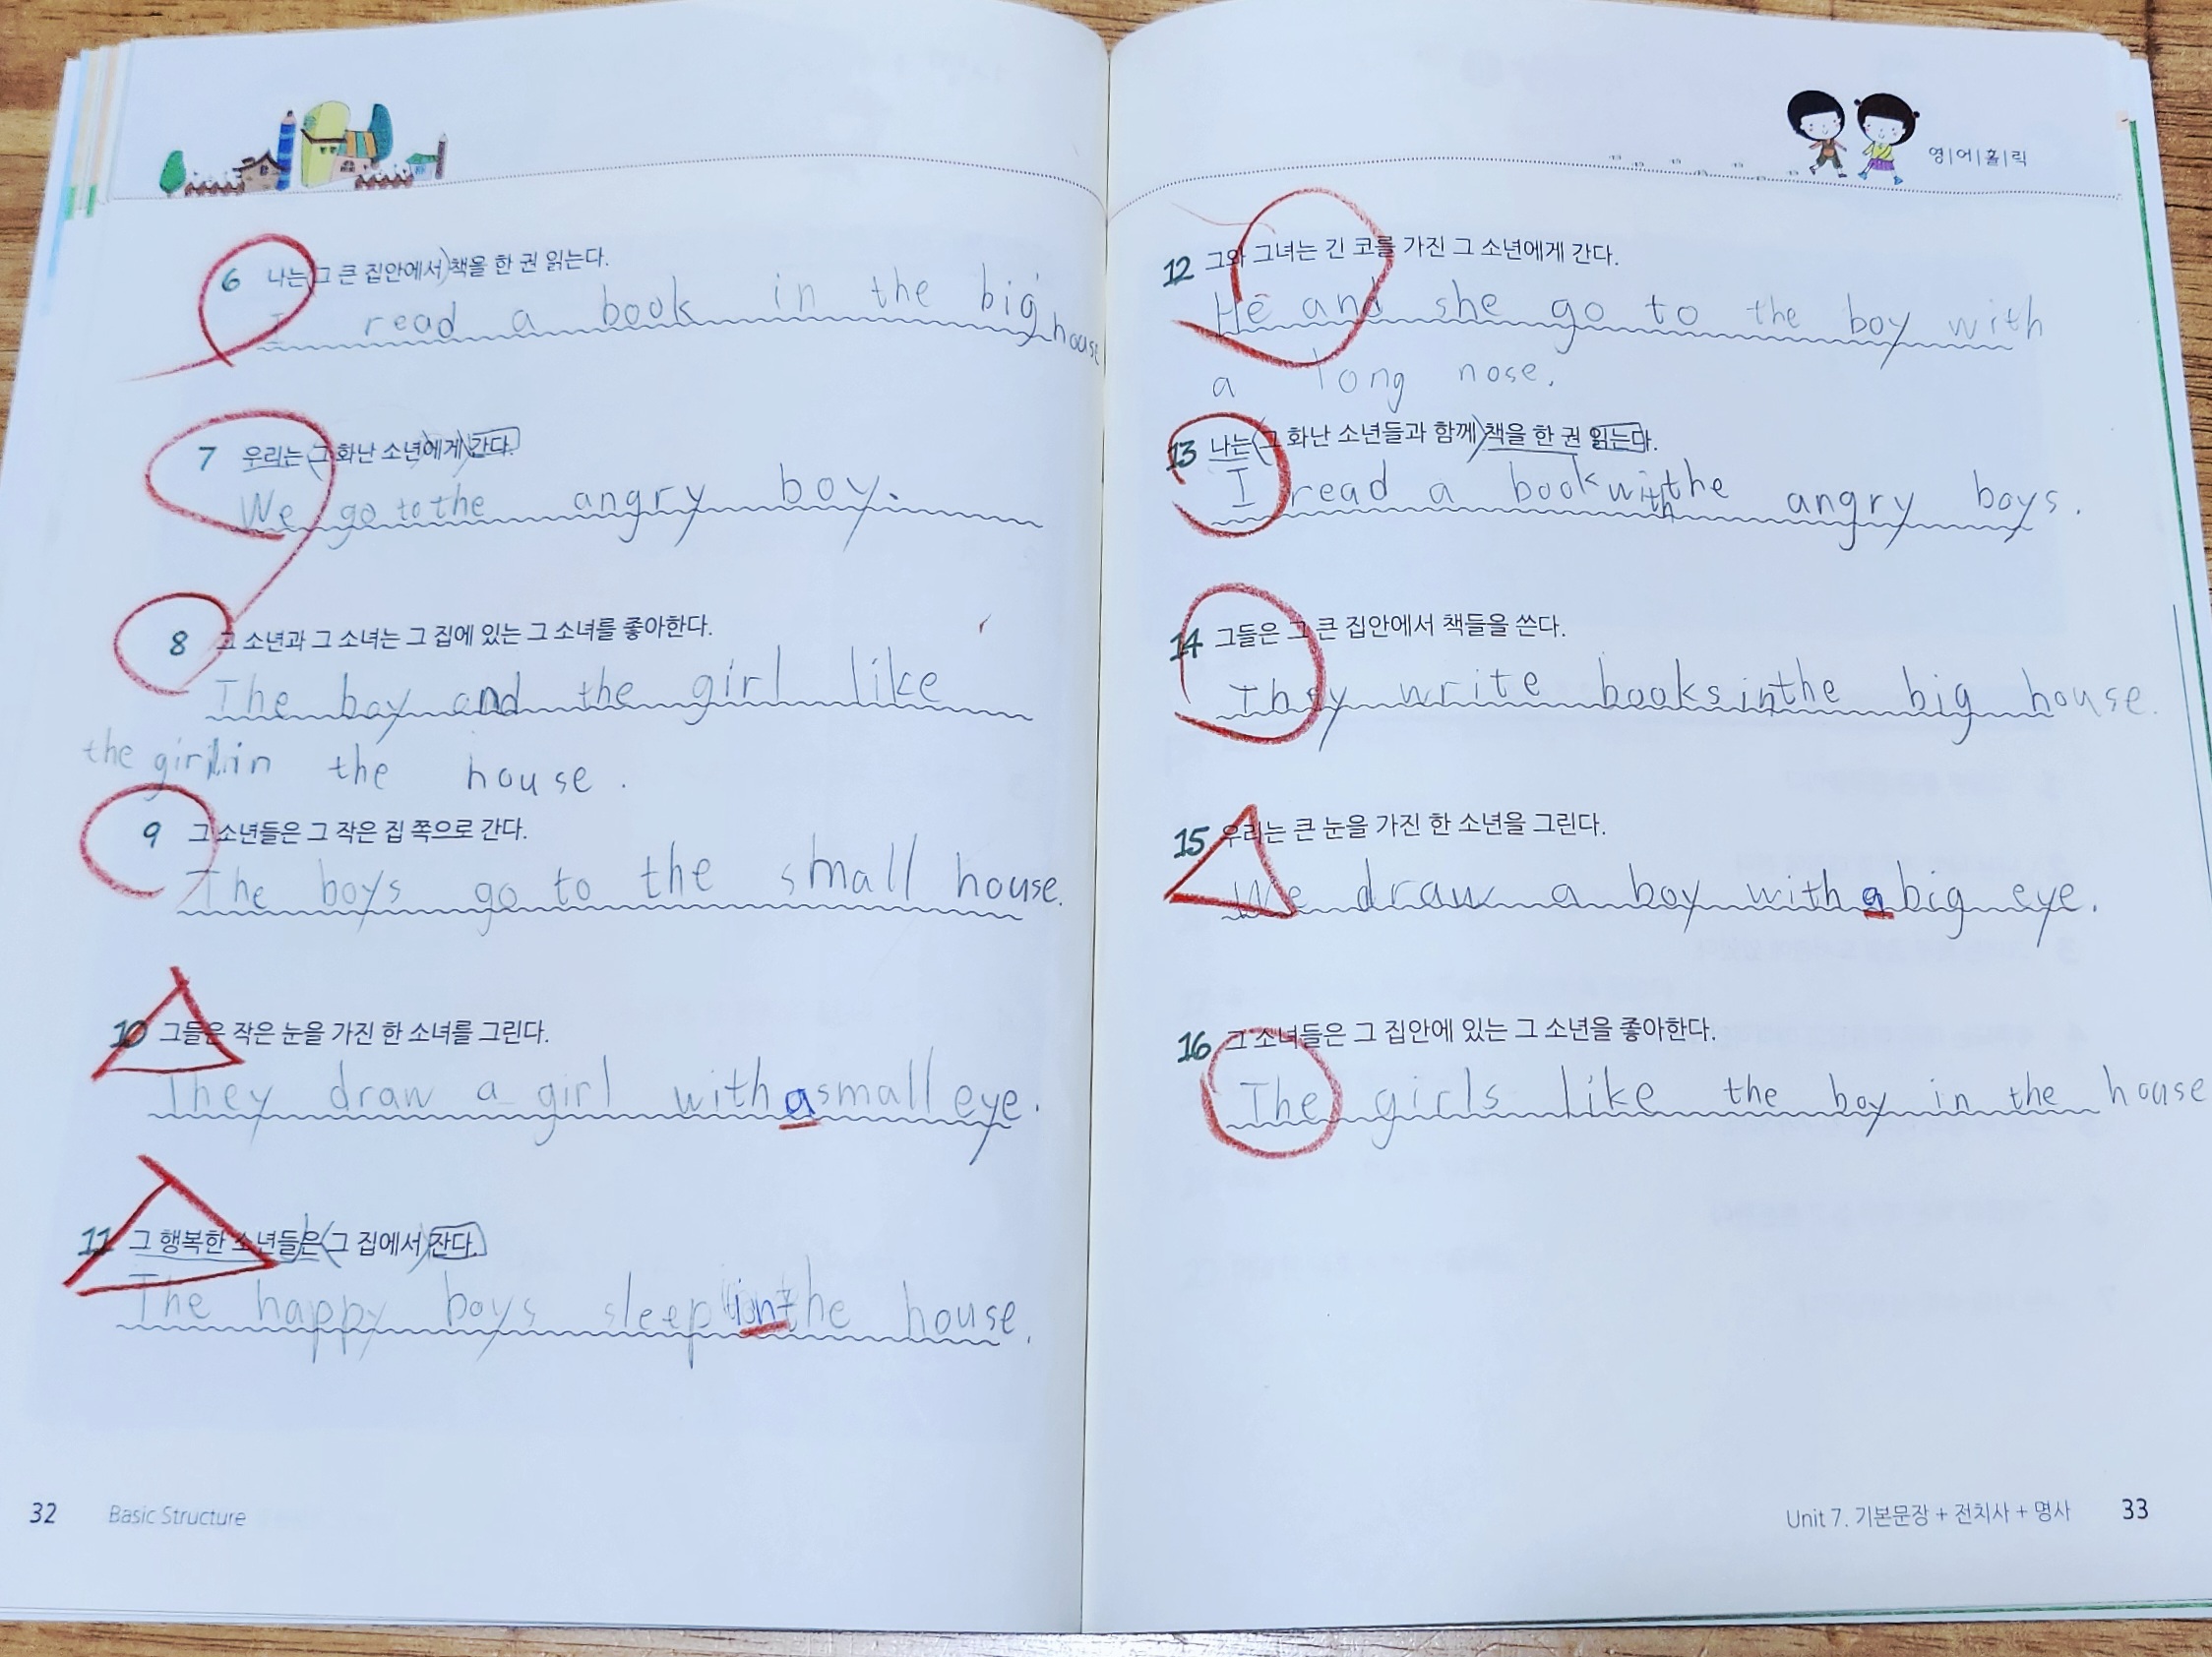 6 나는 그 큰 집안에서 책을 한 권 읽는다.
I read a book in the big house
7 우리는 그 화난 소년에게 간다.
We go to the angry boy.
8 그 소년과 그 소녀는 그 집에 있는 그 소녀를 좋아한다.
The boy and the girl like
the girl in the house.
9 그 소년들은 그 작은 집 쪽으로 간다.
The boys go to the small house.
10 그들은 작은 눈을 가진 한 소녀를 그린다.
They draw a girl with a small eye.
11 그 행복한 소년들은 그 집에서 잔다.
The happy boys sleep in the house.
32 Basic Structure
영|어|홀|릭
12 그와 그녀는 긴 코를 가진 그 소년에게 간다.
He and she go to the boy with
a long nose.
13 나는 그 화난 소년들과 함께 책을 한 권 읽는다.
I read a book with the angry boys.
14 그들은 그 큰 집안에서 책들을 쓴다.
They write books in the big house.
15 우리는 큰 눈을 가진 한 소년을 그린다.
We draw a boy with a big eye.
16 그 소녀들은 그 집안에 있는 그 소년을 좋아한다.
The girls like the boy in the house
Unit 7. 기본문장 + 전치사 + 명사 33